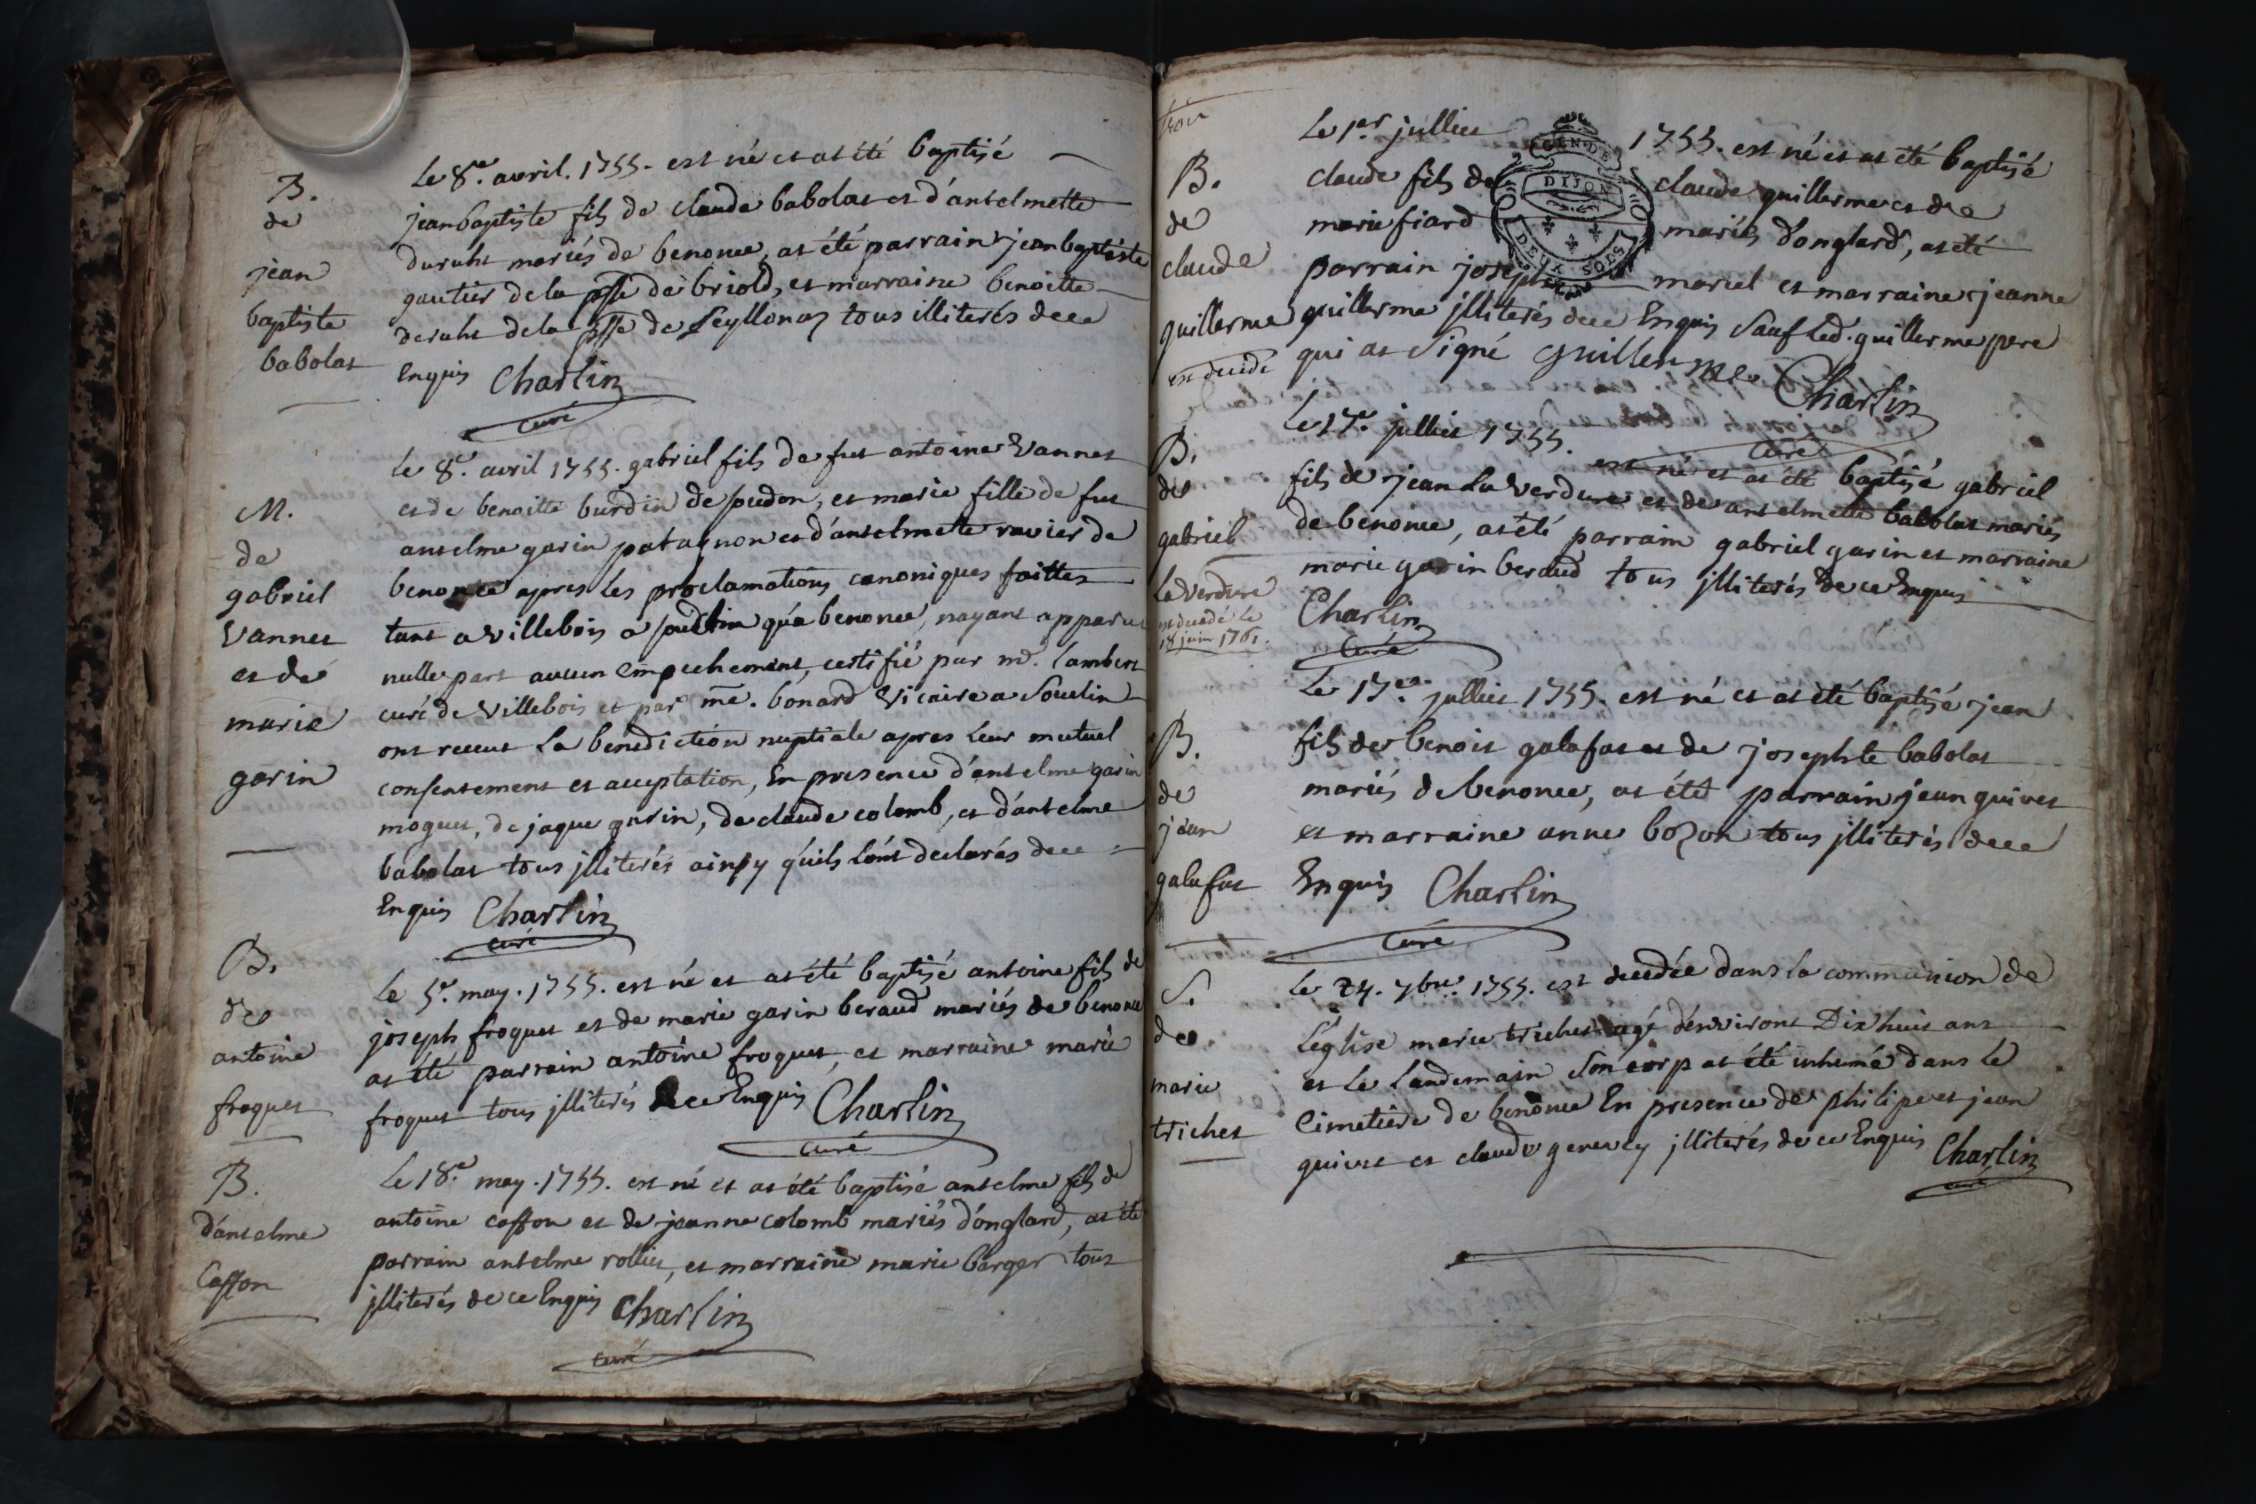 B.
de
jean
baptiste
babolat
Le 8e. avril. 1755. est né et at été baptisé
jeanbaptiste fils de claude babolat et d'antelmette
duruht mariés de benonce, at été parrain jean baptiste
gautier de la psse de briord, et marraine benoitte
deruht de la psse de Seyllonaz tous illiterés de ce
Enquis Charlin
curé
M.
de
gabriel
Vannet
et de
marie
garin
Le 8e. avril 1755. gabriel fils de fut antoine Vannet
et de benoitte burdin de soudon, et marie fille de fut
antelme garin patagnon et d'antelmette ravier de
benonce apres les proclamations canoniques faittes
tant a Villebois a soudon qu'a benonce, nayant apparut
nulle part aucun empechement, certifié par mr. Lambert
curé de Villebois et par me. bonard Vicaire a Souclin
ont receut La benediction nuptiale apres leur mutuel
consentement et acceptation, En presence d'antelme garin
moguet, de jaque garin, de claude colomb, et d'antelme
babolat tous jlliterés ainsy qu'ils l'ont declarés de ce
Enquis Charlin
curé
B.
de
antoine
froquet
Le 5e. may. 1755. est né et at été baptisé antoine fils de
joseph froquet et de marie garin beraud mariés de benonce
at été parrain antoine froquet, et marraine marie
froquet tous jlliterés de ce Enquis Charlin
curé
B.
d'antelme
Caffon
Le 18e. may. 1755. est né et at été baptisé antelme fils de
antoine caffon et de jeanne colomb mariés d'onglard, at été
parrain antelme rollier, et marraine marie barger tous
jlliterés de ce Enquis Charlin
curé
B.
de
claude
guillerme
est decedé
Le 1er julliet 1755. est né et at été baptisé
claude fils de claude guillerme et de
marie fiard mariés d'onglard, at été
parrain joseph martel et marraine jeanne
guillerme jlliterés de ce Enquis Sauf led. guillerme pere
qui at Signé guillerme Charlin
curé
GEN. DE
DIJON
DEUX SOLS
B.
de
gabriel
La Verdure
est decedé le
18 juin 1761.
Le 17e. julliet 1755. est né et at été baptisé gabriel
fils de jean La Verdure et de antelmette babolat mariés
de benonce, at été parrain gabriel garin et marraine
marie garin beraud tous jlliterés de ce Enquis
Charlin
Curé
B.
de
jean
galafat
Le 17e. jullict 1755. est né et at été baptisé jean
fils de benoit galafat et de josephte babolat
mariés de benonce, at été parrain jean quivet
et marraine anne bozon tous jlliterés de ce
Enquis Charlin
Curé
S.
de
marie
trichet
Le 24. 7bre. 1755. est decedée dans la communion de
L'eglise marie trichet agé d'environt Dix huit ans
et le Landemain Son corp at été inhumé dans le
Cimetiere de benonce En presence de philipe et jean
quivet et claude genevey jlliterés de ce Enquis Charlin
curé